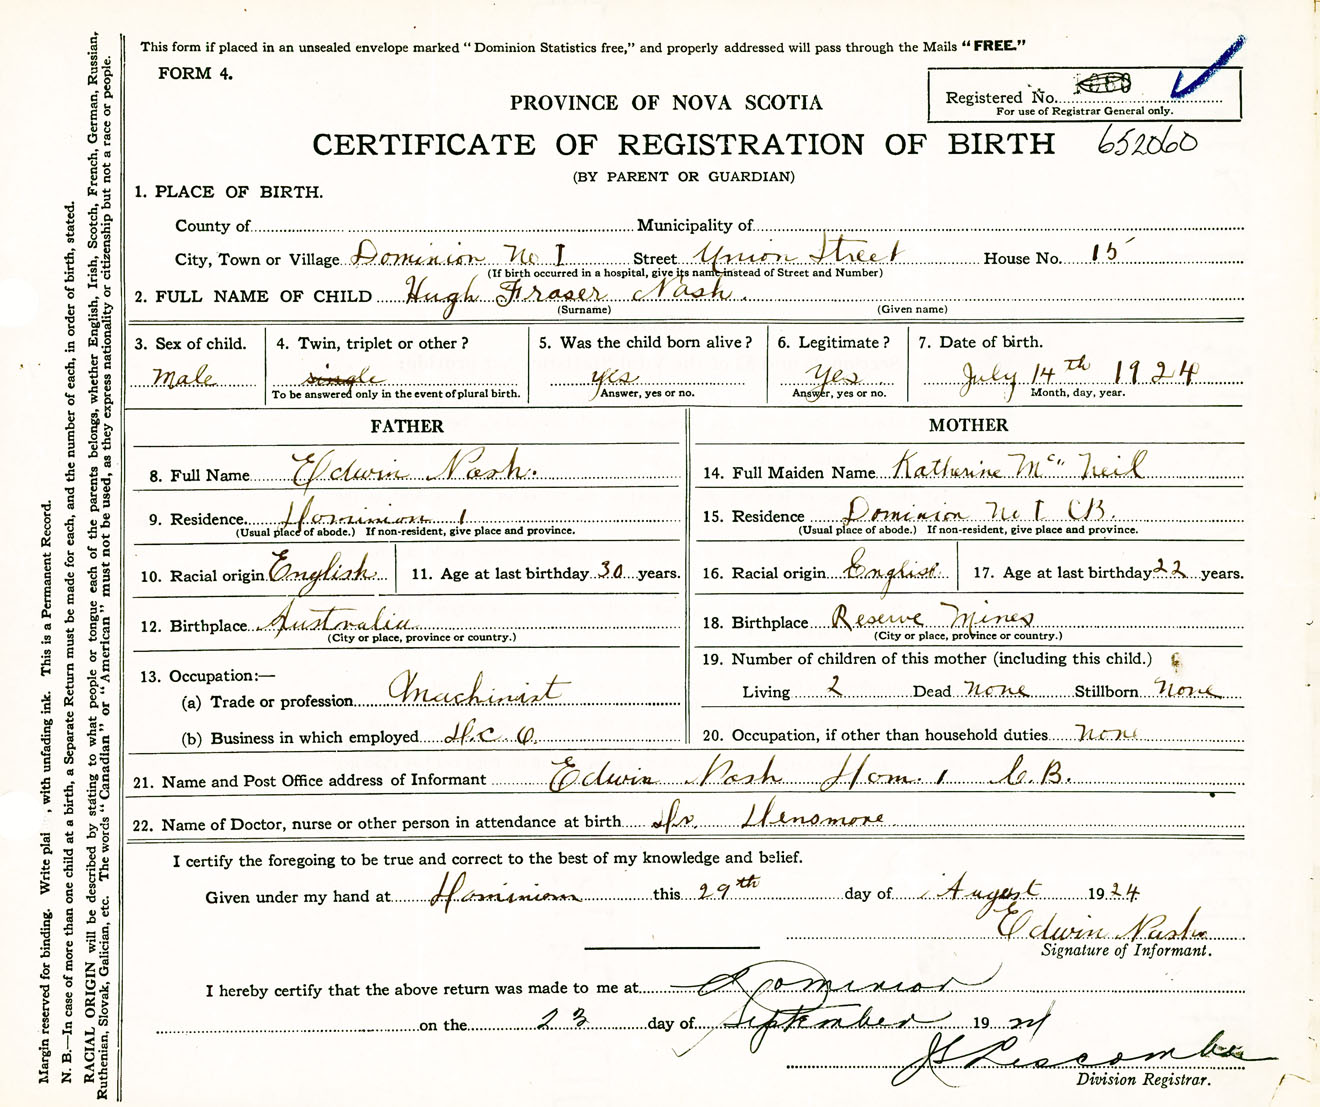 This form if placed in an unsealed envelope marked "Dominion Statistics free," and properly addressed will pass through the Mails "FREE."
FORM 4.
Registered No.
For use of Registrar General only.
PROVINCE OF NOVA SCOTIA
CERTIFICATE OF REGISTRATION OF BIRTH 652060
(BY PARENT OR GUARDIAN)
1. PLACE OF BIRTH.
County of Municipality of
City, Town or Village Dominion No 1 Street Union Street House No. 15
(If birth occurred in a hospital, give its name instead of Street and Number)
2. FULL NAME OF CHILD Hugh Fraser Nash.
(Surname) (Given name)
3. Sex of child. 4. Twin, triplet or other? 5. Was the child born alive? 6. Legitimate? 7. Date of birth.
Male single yes Yes July 14th 1924
To be answered only in the event of plural birth. Answer, yes or no. Answer, yes or no. Month, day, year.
FATHER MOTHER
8. Full Name Edwin Nash. 14. Full Maiden Name Katherine Mc" Neil
9. Residence. Dominion 1 15. Residence Dominion No 1 CB.
(Usual place of abode.) If non-resident, give place and province. (Usual place of abode.) If non-resident, give place and province.
10. Racial origin English 11. Age at last birthday 30 years. 16. Racial origin English 17. Age at last birthday 22 years.
12. Birthplace Australia 18. Birthplace Reserve Mines
(City or place, province or country.) (City or place, province or country.)
13. Occupation:— 19. Number of children of this mother (including this child.)
(a) Trade or profession Machinist Living 2 Dead none Stillborn None
(b) Business in which employed D.C.O. 20. Occupation, if other than household duties None
21. Name and Post Office address of Informant Edwin Nash Dom. 1 C.B.
22. Name of Doctor, nurse or other person in attendance at birth Dr. Densmore
I certify the foregoing to be true and correct to the best of my knowledge and belief.
Given under my hand at Dominion this 29th day of August 1924
Edwin Nash
Signature of Informant.
I hereby certify that the above return was made to me at Dominion
on the 23 day of September 1924
Lescombe
Division Registrar.
Margin reserved for binding. Write , with unfading ink. This is a Permanent Record.
N. B.—In case of more than one child at a birth, a Separate Return must be made for each, and the number of each, in order of birth, stated.
RACIAL ORIGIN will be described by stating to what people or tongue each of the parents belongs, whether English, Irish, Scotch, French, German, Russian,
Ruthenian, Slovak, Galician, etc. The words "Canadian" or "American" must not be used, as they express nationality or citizenship but not a race or people.